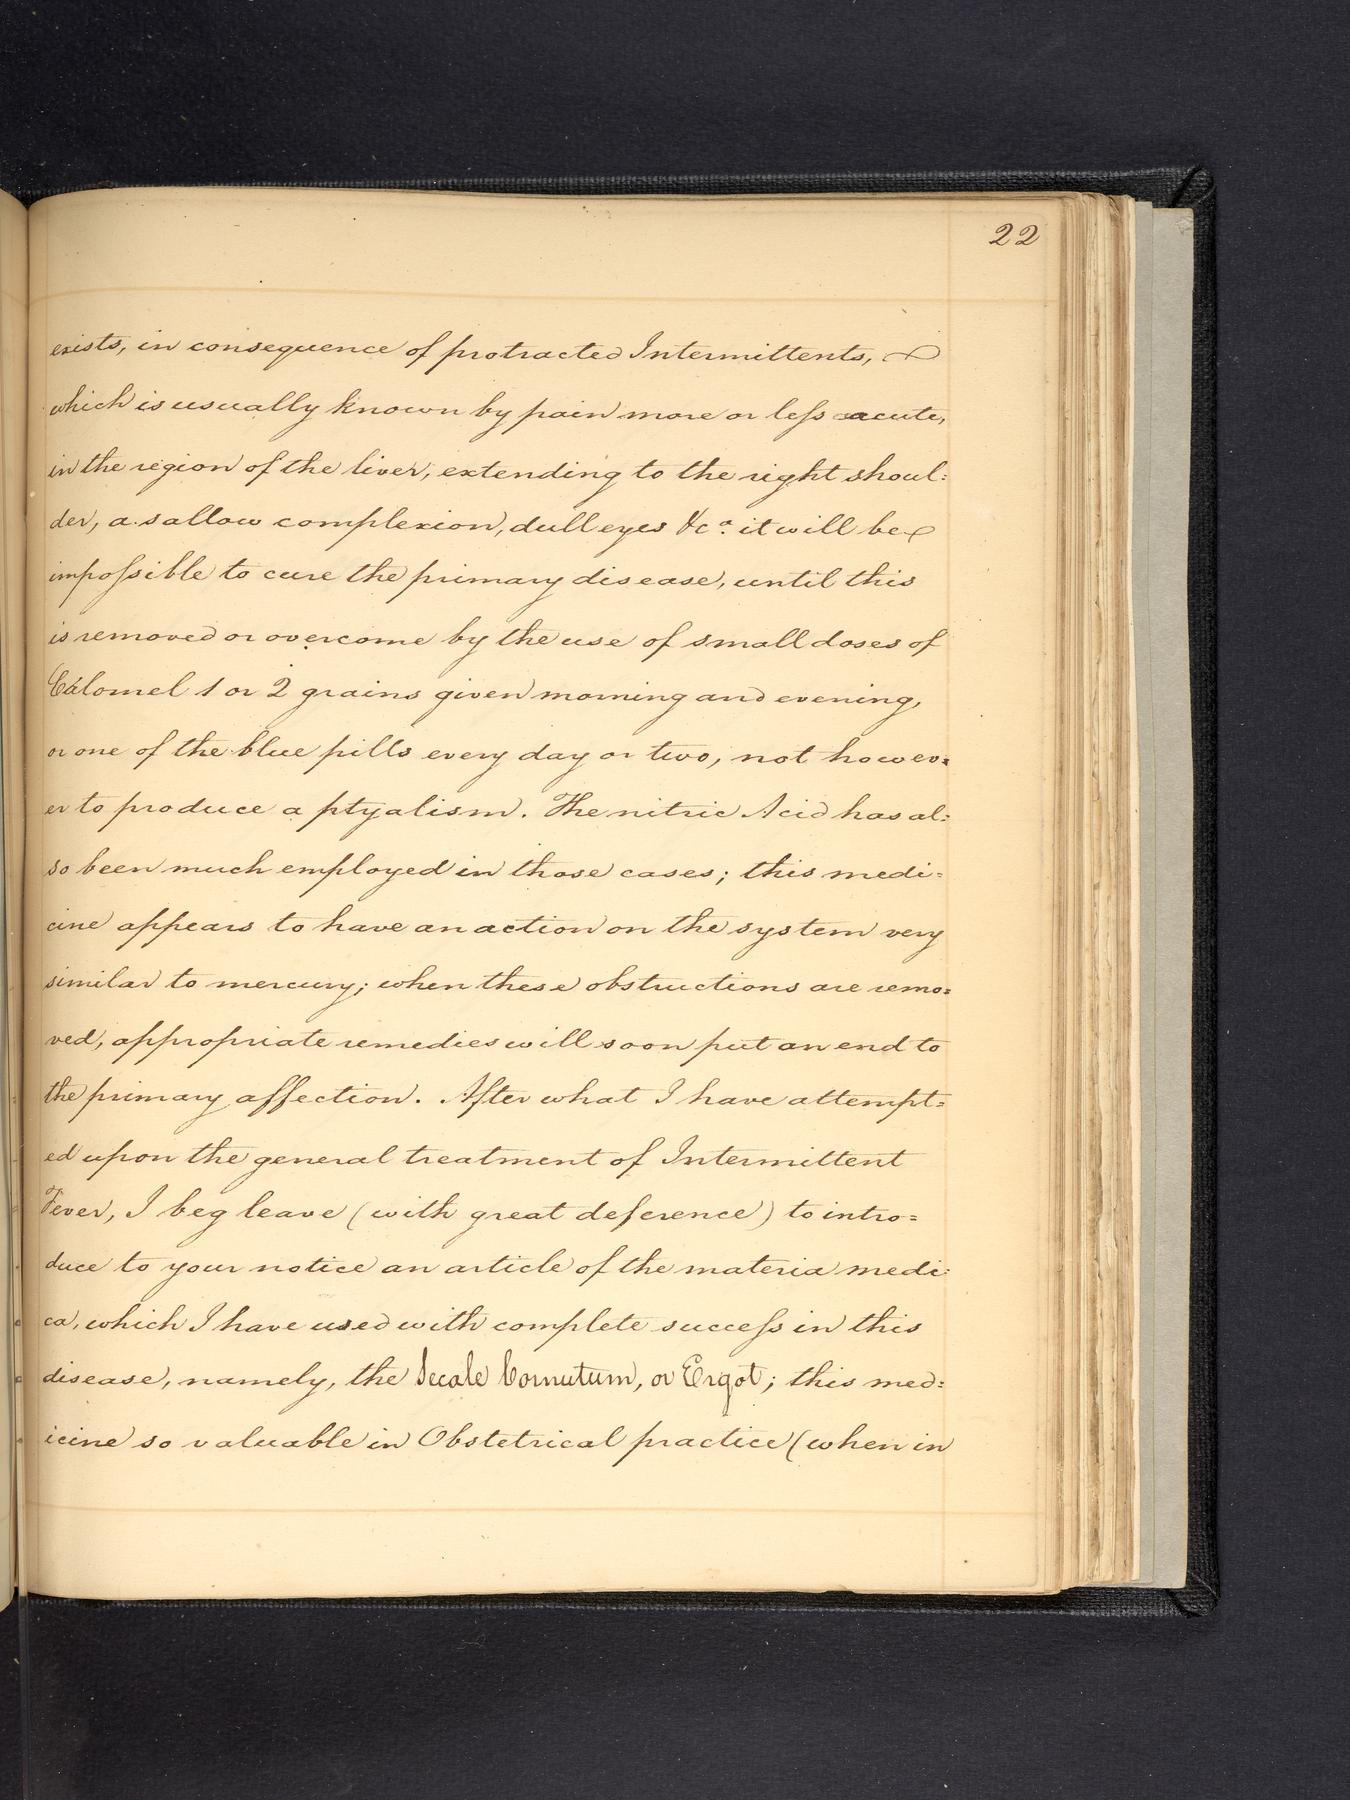 22
exists, in consequence of protracted Intermittents,
which is usually known by pain more or less acute,
in the region of the liver, extending to the right shoul=
der, a sallow complexion, dull eyes &ca. it will be
impossible to cure the primary disease, until this
is removed or overcome by the use of small doses of
Calomel 1 or 2 grains given morning and evening,
or one of the blue pills every day or two, not howev=
er to produce a ptyalism. The nitric Acid has al=
so been much employed in those cases; this medi=
cine appears to have an action on the system very
similar to mercury; when these obstructions are remo=
ved, appropriate remedies will soon put an end to
the primary affection. After what I have attempt=
ed upon the general treatment of Intermittent
Fever, I beg leave (with great deference) to intro=
duce to your notice an article of the materia medi=
ca, which I have used with complete success in this
disease, namely, the Secale Cornutum, or Ergot; this med=
icine so valuable in Obstetrical practice (when in